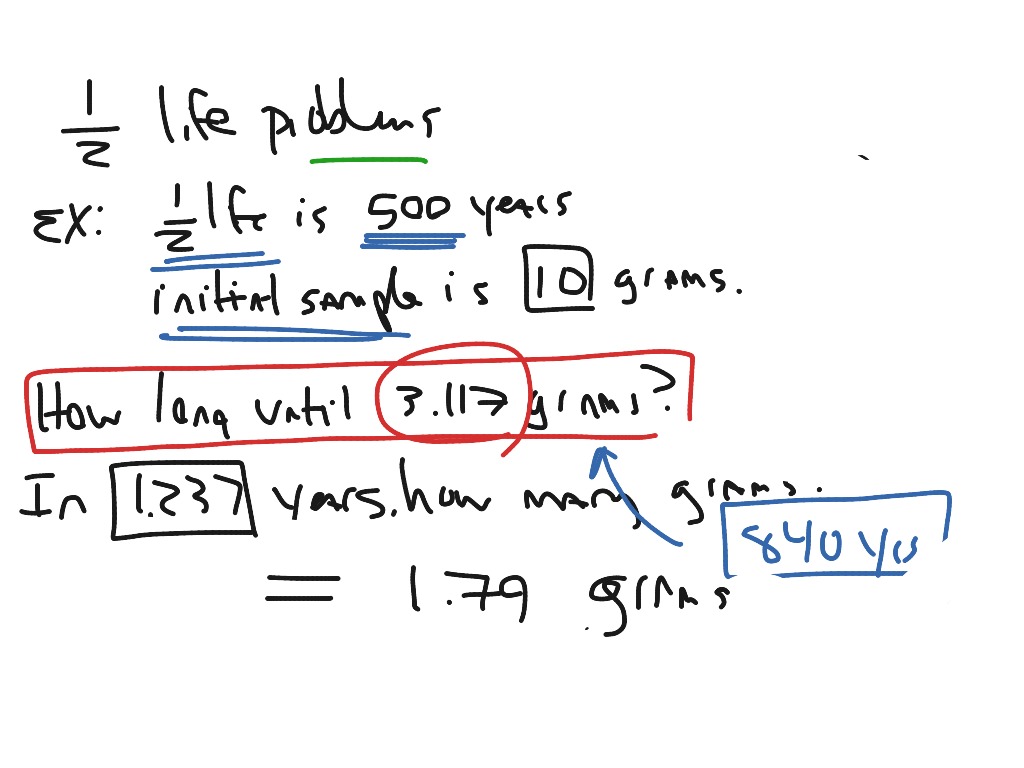 1/2 life problems
EX: 1/2 life is 500 years
initial sample is 10 grams.
How long until 3.117 grams?
In 1.237 years. how many grams.
840 yrs
= 1.79 grams